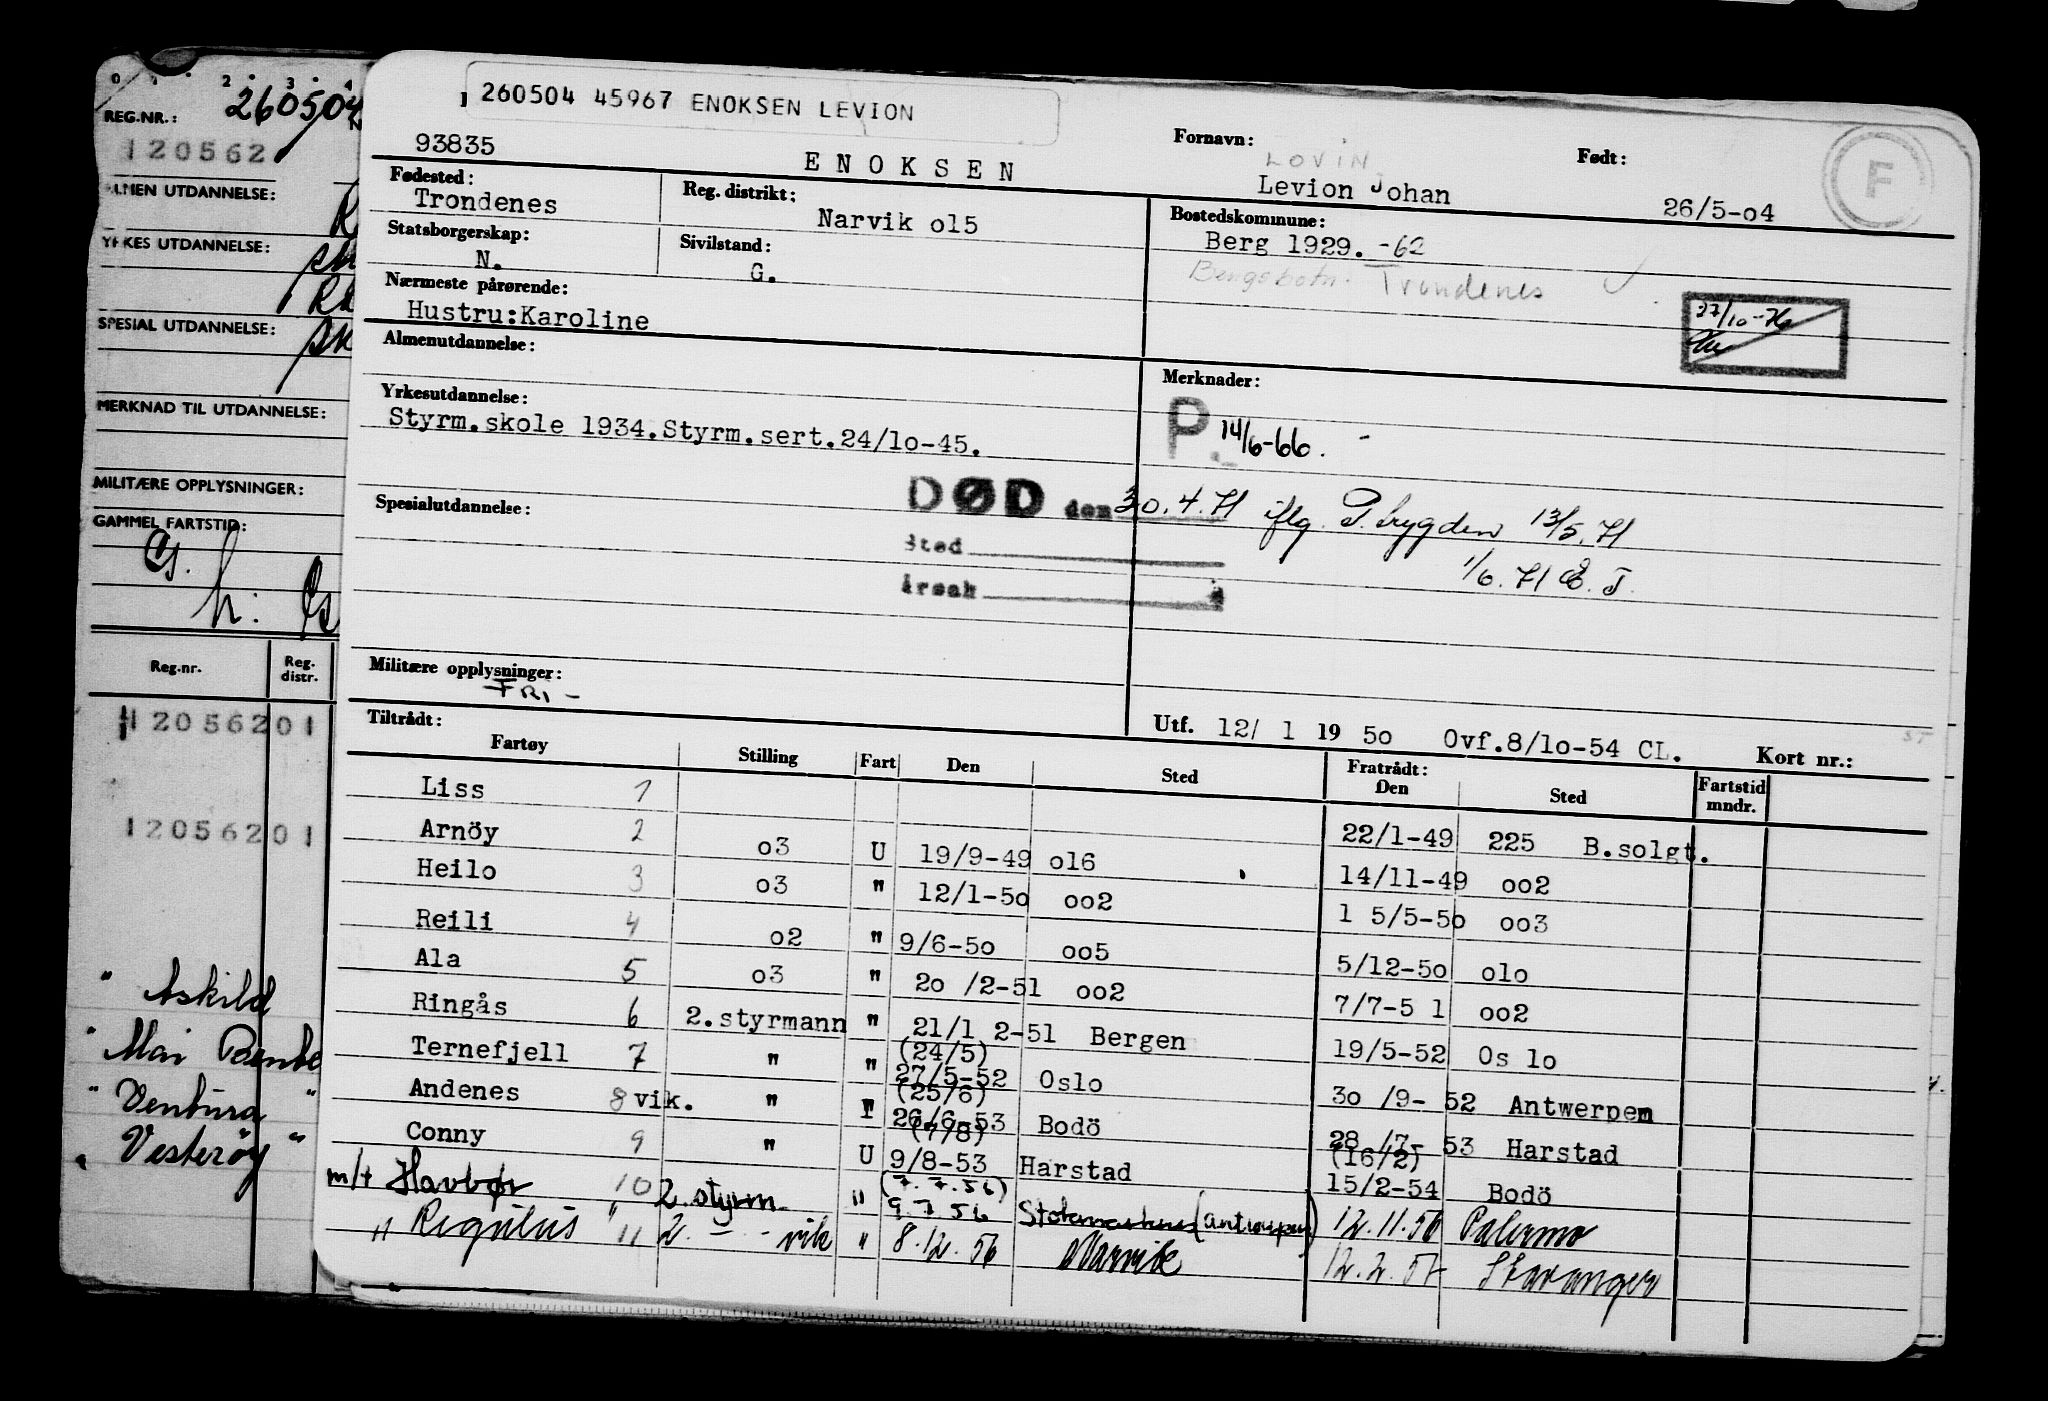 260504 45967 ENOKSEN LEVION
93835
ENOKSEN
Fornavn:
LOVIN
Levion Johan
Født:
26/5-o4
F
Fødested:
Trondenes
Reg. distrikt:
Narvik o15
Bostedskommune:
Berg 1929. -62
Statsborgerskap:
N.
Sivilstand:
G.
Trondenes
Nærmeste pårørende:
Hustru:Karoline
27/10-76
Almenutdannelse:
Merknader:
Yrkesutdannelse:
Styrm.skole 1934.Styrm.sert.24/1o-45.
P. 14/6-66.
Spesialutdannelse:
DØD den 30.4.71 iflg. P.trygden 13/5.71
Sted
1/6.71
Årsak
Militære opplysninger:
FRI -
Tiltrådt:
Utf. 12/ 1 19 5o Ovf.8/1o-54 CL. Kort nr.:
Fartøy Stilling Fart Den Sted Fratrådt: Den Sted Fartstid mndr.
Liss 1 22/1-49 225 B.solgt.
Arnöy 2 o3 U 19/9-49 o16 14/11-49 oo2
Heilo 3 o3 " 12/1-5o oo2 1 5/5-5o oo3
Reili 4 o2 " 9/6-5o oo5 5/12-5o o1o
Ala 5 o3 " 2o /2-51 oo2 7/7-5 1 oo2
Ringås 6 2.styrmann " 21/1 2-51 Bergen 19/5-52 Os lo
Ternefjell 7 " " (24/5) 27/5-52 Oslo 3o /9- 52 Antwerpen
Andenes 8 vik. " I (25/6) 26/6-53 Bodö 28 /7- 53 Harstad
Conny 9 " U (7/8) 9/8-53 Harstad (16/2) 15/2-54 Bodö
m/t Havbør 10 2. styrm. " (7.7.56) 9.7.56 (Antwerpen) 12.11.56 Palermo
" Regulus " 11 2. - - vik " 8.12.56 Narvik 12.2.57 Stavanger
0 1 2 3 4
REG.NR.: 260504
120562
ALMEN UTDANNELSE:
YRKES UTDANNELSE:
SPESIAL UTDANNELSE:
MERKNAD TIL UTDANNELSE:
MILITÆRE OPPLYSNINGER:
GAMMEL FARTSTID:
Reg.nr. Reg. distr.
12056201
12056201
" Askild
" Mari
" Ventura "
" Vesterøy "